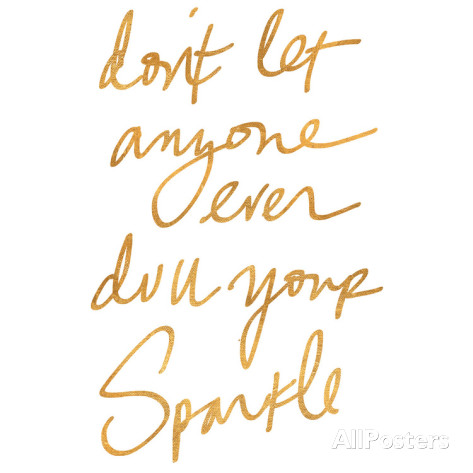 don't let
anyone
ever
dull your
Sparkle
AllPosters